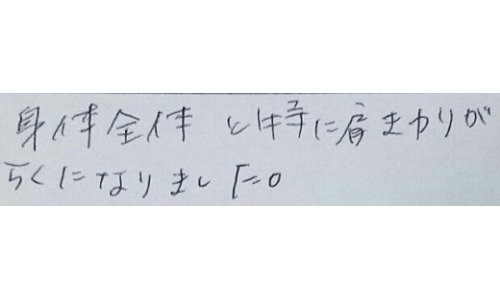 身体全体 と特に肩まわりが
らくになりました。